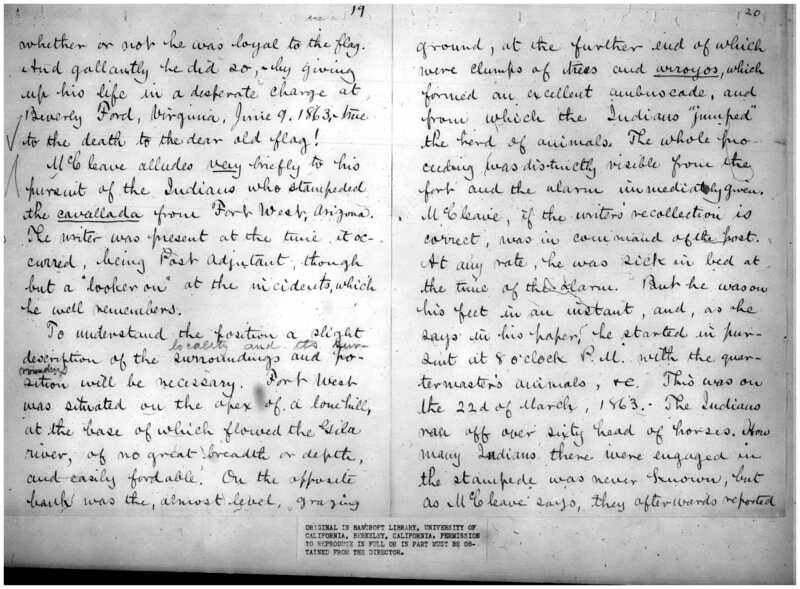 19
whether or not he was loyal to the flag.
And gallantly he did so, - by giving
up his life in a desperate charge at
Beverly Ford, Virginia, June 9, 1863, - true
to the death to the dear old flag!
McCleave alludes very briefly to his
pursuit of the Indians who stampeded
the cavallada from Fort West, Arizona.
The writer was present at the time it oc-
curred, being Post Adjutant, though
but a "looker on" at the incidents, which
he well remembers.
To understand the position a slight
locality and its sur-
description of the surroundings and po-
roundings
sition will be necessary. Fort West
was situated on the apex of a lone hill,
at the base of which flowed the Gila
river, of no great breadth or depth,
and easily fordable. On the opposite
bank was the, almost level, grazing
20
ground, at the further end of which
were clumps of trees and arroyos, which
formed an excellent ambuscade, and
from which the Indians "jumped"
the herd of animals. The whole pro-
ceeding was distinctly visible from the
fort and the alarm immediately given.
McCleave, if the writer's recollection is
correct, was in command of the post.
At any rate, he was sick in bed at
the time of the alarm. But he was on
his feet in an instant, and, as he
says in his paper, he started in pur-
suit at 8 o'clock P.M. with the quar-
termaster's animals, &c. This was on
the 22d of March, 1863. - The Indians
ran off over sixty head of horses. How
many Indians there were engaged in
the stampede was never known, but
as McCleave says, they afterwards reported
ORIGINAL IN BANCROFT LIBRARY, UNIVERSITY OF
CALIFORNIA, BERKELEY, CALIFORNIA. PERMISSION
TO REPRODUCE IN FULL OR IN PART MUST BE OB-
TAINED FROM THE DIRECTOR.